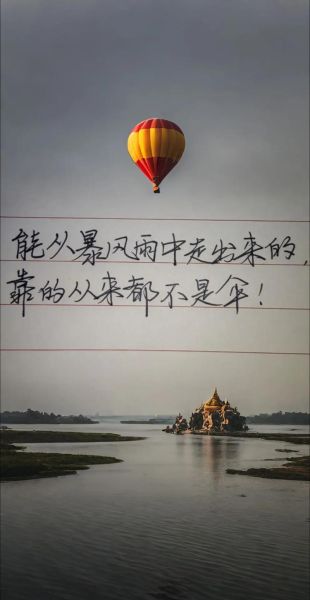 能从暴风雨中走出来的,
靠的从来都不是伞!